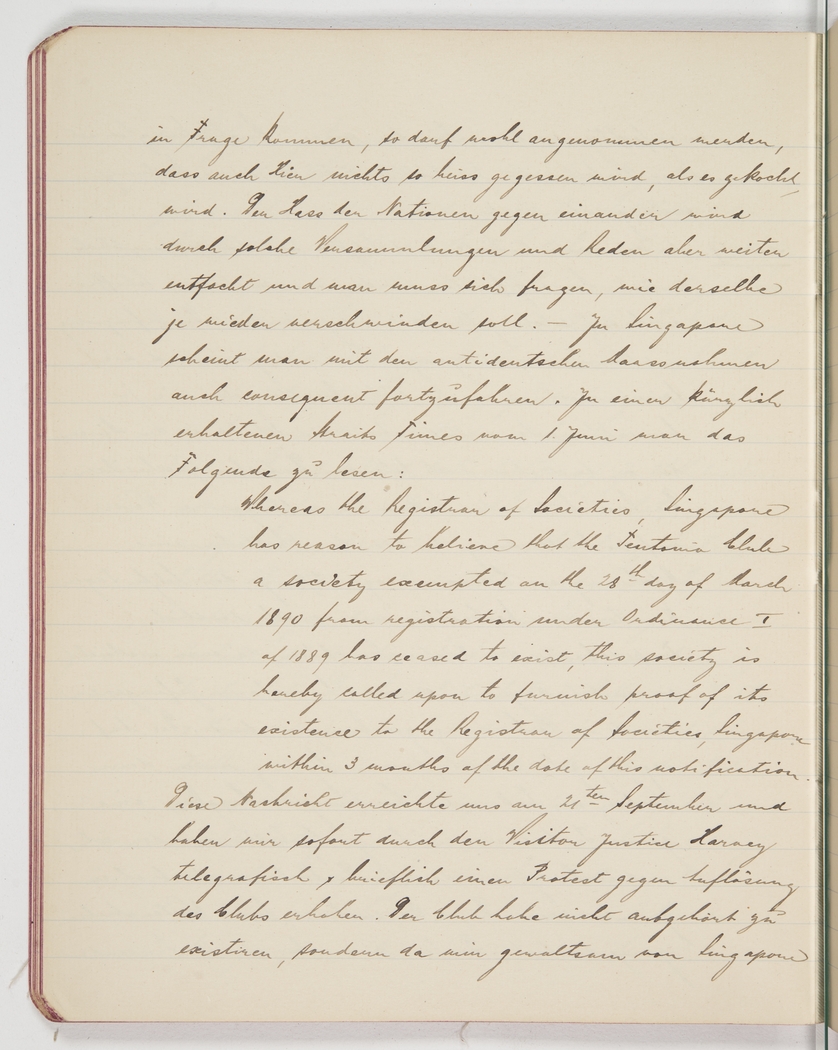 in Frage kommen, so darf wohl angenommen werden,
dass auch hier nichts so heiss gegessen wird, als es gekocht
wird. Der Hass der Nationen gegen einander wird
durch solche Versammlungen und Reden aber weiter
entfacht und man muss sich fragen, wie derselbe
je wieder verschwinden soll. — In Singapore
scheint man mit den antideutschen Maassnahmen
auch consequent fortzufahren. In einer kürzlich
erhaltenen Straits Times vom 1. Juni war das
Folgende zu lesen:
Whereas the Registrar of Societies, Singapore
has reason to believe that the Teutonia Club
a society exempted on the 28th day of March
1890 from registration under Ordinance I
of 1889 has ceased to exist, this society is
hereby called upon to furnish proof of its
existence to the Registrar of Societies, Singapore
within 3 months of the date of this notification.
Diese Nachricht erreichte uns am 21ten September und
haben wir sofort durch den Visitor Justice Harvey
telegrafisch & brieflich einen Protest gegen Auflösung
des Clubs erhoben. Der Club habe nicht aufgehört zu
existiren, sondern da wir gewaltsam von Singapore